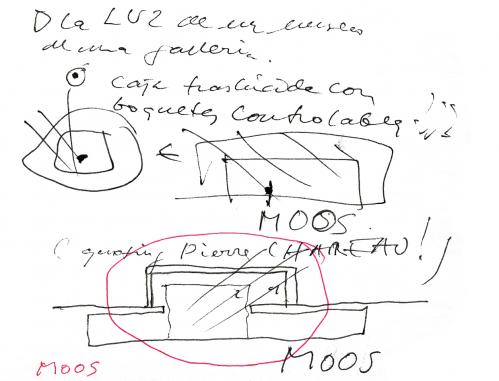 D la LUZ de un museo
de una galleria.
caja traslucida con
boquetes controlables
MOOS
(quoting Pierre CHAREAU!)
MOOS
MOOS